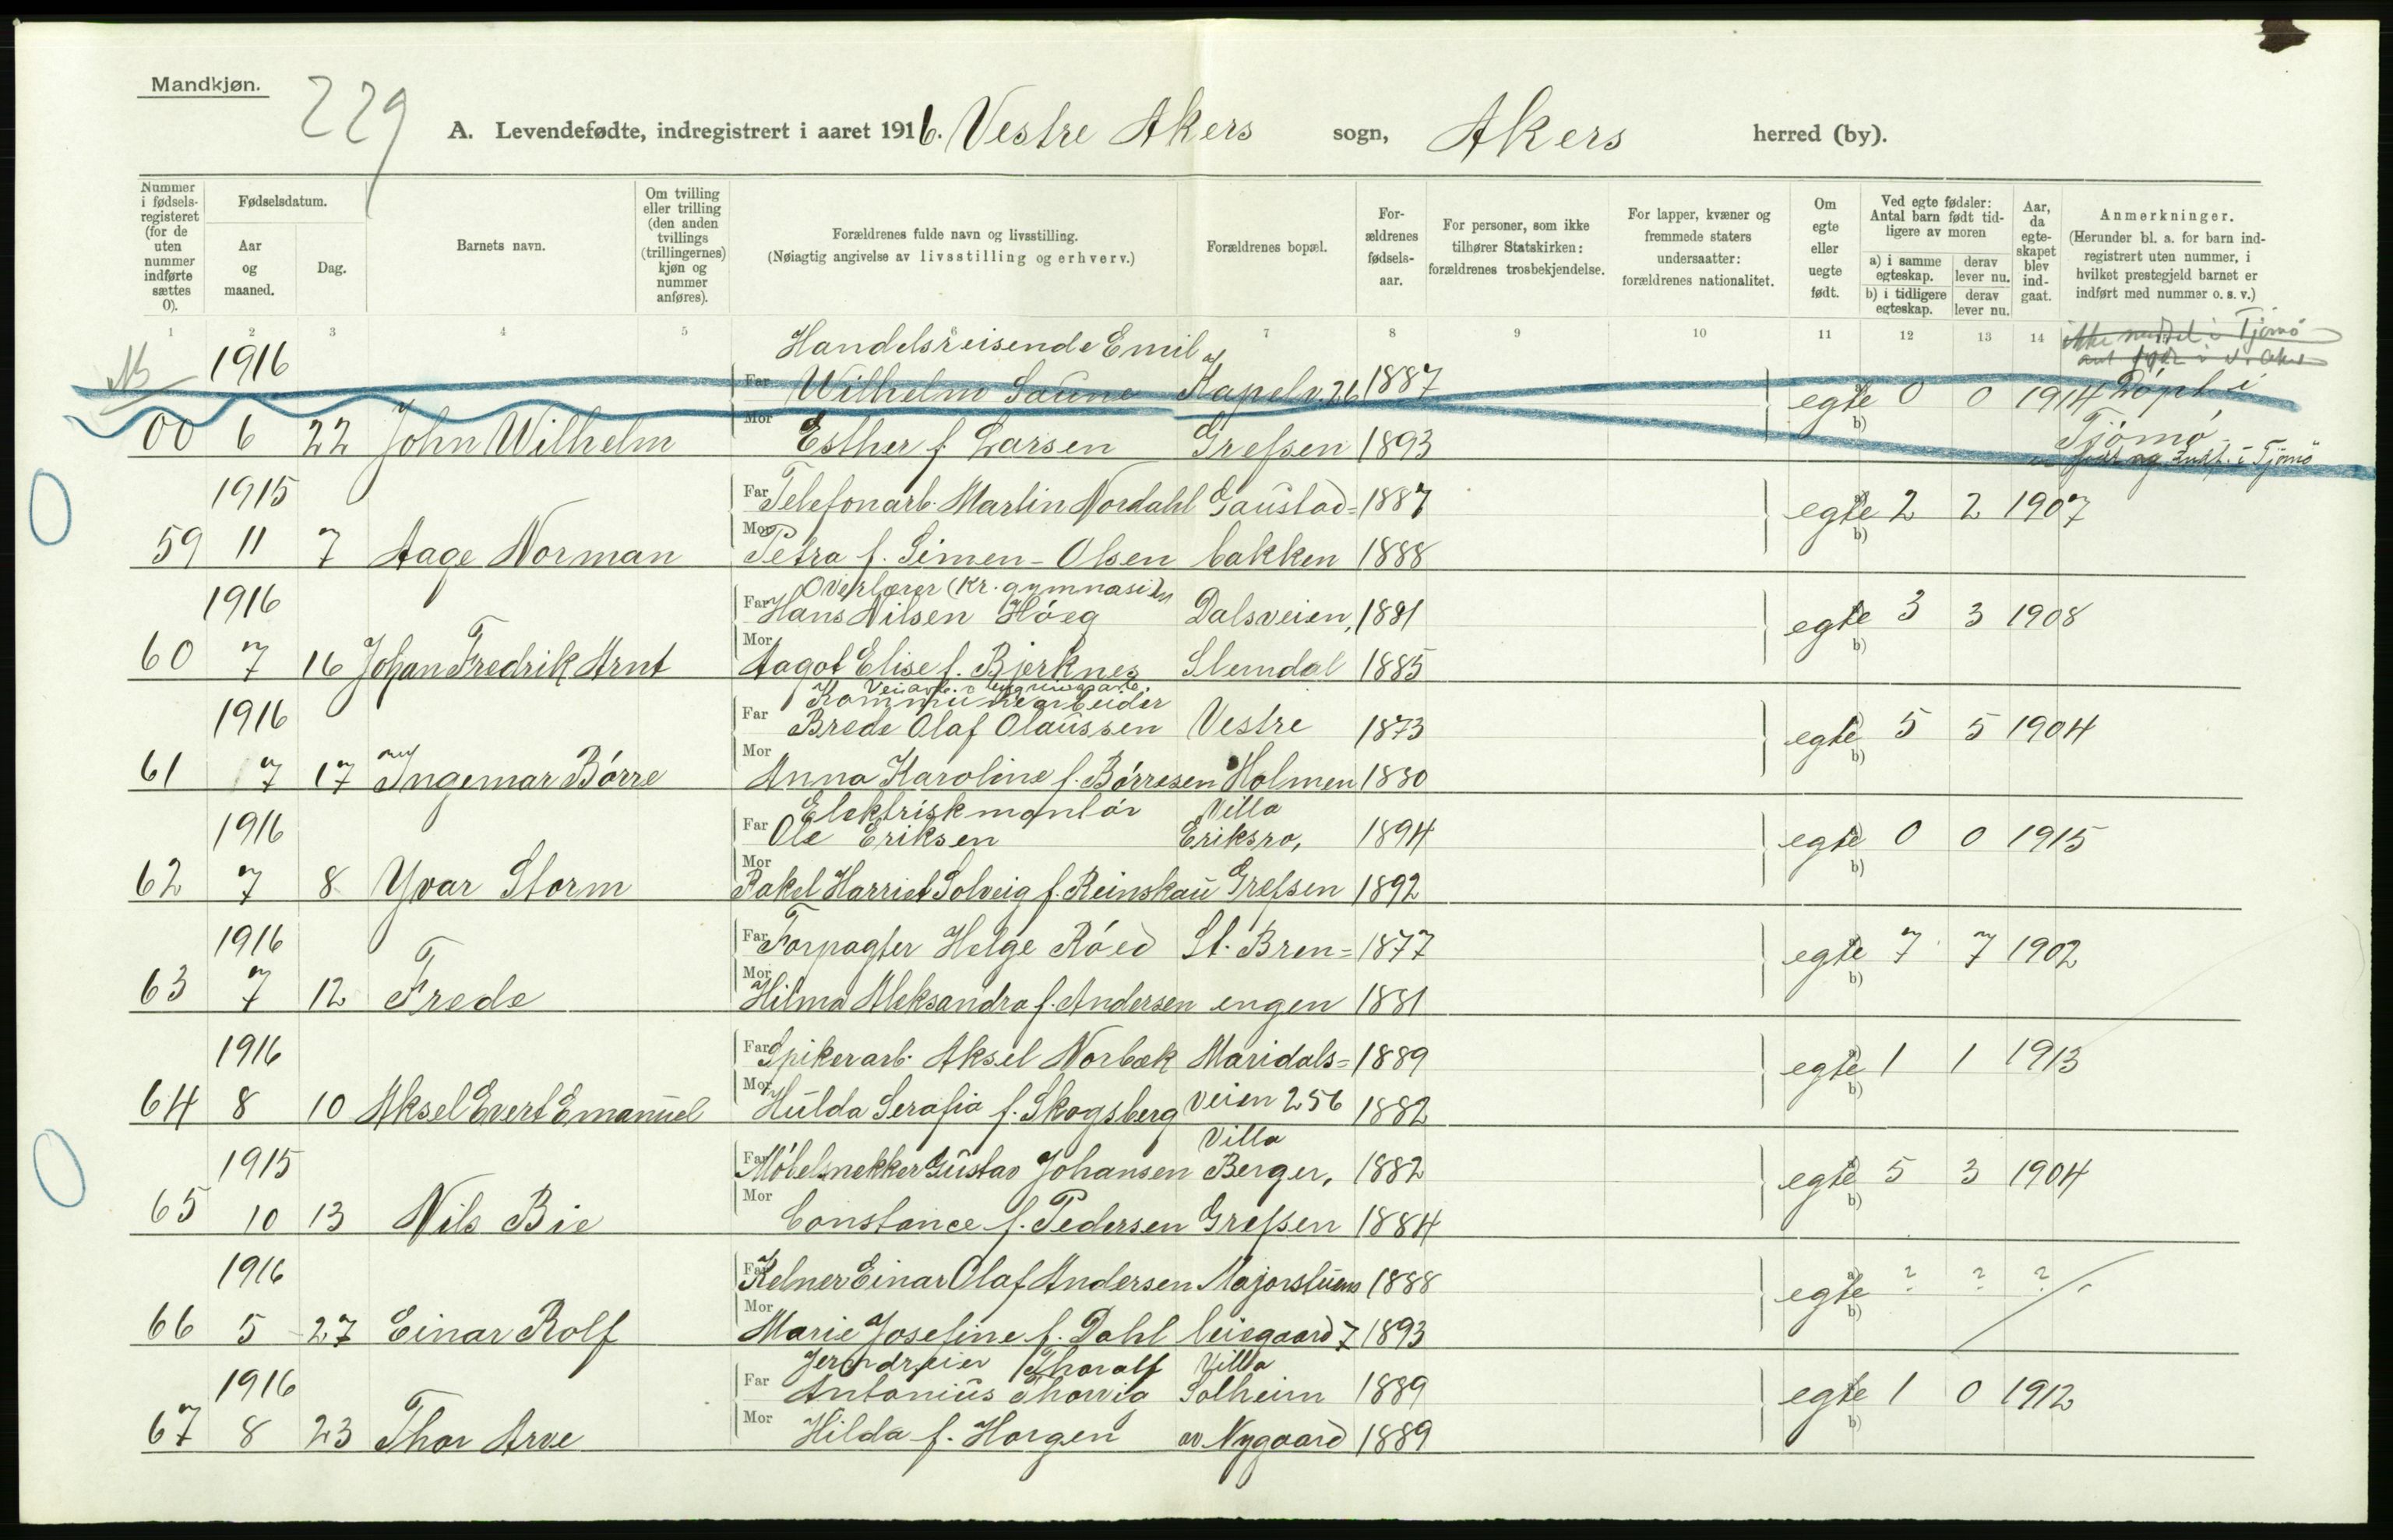 Mandkjøn.
229
A. Levendefødte, indregistrert i aaret 1916. Vestre Akers sogn, Akers herred (by).
Nummer i fødselsregisteret (for de uten nummer indførte sættes 0).
Fødselsdatum.
Aar og maaned.
Dag.
Barnets navn.
Om tvilling eller trilling (den anden tvillings (trillingernes) kjøn og nummer anføres).
Forældrenes fulde navn og livsstilling.
(Nøiagtig angivelse av livsstilling og erhverv.)
Forældrenes bopæl.
Forældrenes fødselsaar.
For personer, som ikke tilhører Statskirken: forældrenes trosbekjendelse.
For lapper, kvæner og fremmede staters undersaatter: forældrenes nationalitet.
Om egte eller uegte født.
Ved egte fødsler: Antal barn født tidligere av moren
a) i samme egteskap. derav lever nu.
b) i tidligere egteskap. derav lever nu.
Aar, da egteskapet blev indgaat.
Anmerkninger.
(Herunder bl. a. for barn indregistrert uten nummer, i hvilket prestegjeld barnet er indført med nummer o. s. v.)
1 2 3 4 5 6 7 8 9 10 11 12 13 14
Handelsreisende Emil
1916 Far Wilhelm Saune Kapelv. 26 1887 egte a) 0 0 1914 Döpt i
00 6 22 John Wilhelm Mor Esther f. Larsen Grefsen 1893 b) Tjömö
1915 Far Telefonarb. Martin Nordahl Gaustad= 1887 egte a) 2 2 1907
59 11 7 Aage Norman Mor Petra f. Simen-Olsen bakken 1888 b)
Overlærer (Kr. gymnasium
1916 Far Hans Nilsen Höeg Dalsveien, 1881 egte a) 3 3 1908
60 7 16 Johan Fredrik Arnt Mor Aagot Elise f. Bjerknes Slemdal 1885 b)
Kommunearbeider
1916 Far Brede Olaf Olaussen Vestre 1873 egte a) 5 5 1904
61 7 17 Ingemar Börre Mor Anna Karoline f. Börresen Holmen 1880 b)
Elektriskmontör Villa
1916 Far Ole Eriksen Eriksro, 1894 egte a) 0 0 1915
62 7 8 Yvar Storm Mor Rakel Harriet Solveig f. Reinskau Grefsen 1892 b)
1916 Far Forpagter Helge Röed St. Bren= 1877 egte a) 7 7 1902
63 7 12 Frede Mor Hilma Aleksandra f. Andersen engen 1881 b)
1916 Far Spikerarb. Aksel Norbæk Maridals= 1889 egte a) 1 1 1913
64 8 10 Aksel Evert Emanuel Mor Hulda Serafia f. Skogsberg veien 256 1882 b)
Villa
1915 Far Möbelsnekker Gustav Johansen Berger, 1882 egte a) 5 3 1904
65 10 13 Nils Bie Mor Constance f. Pedersen Grefsen 1884 b)
1916 Far Kelner Einar Olaf Andersen Majorstuens 1888 egte a) ? ? ?
66 5 27 Einar Rolf Mor Marie Josefine f. Dahl leiegaard 7 1893 b)
Jerndreier Thoralf Villa
1916 Far Antonius Thorvig Solheim 1889 egte a) 1 0 1912
67 8 23 Thor Arve Mor Hilda f. Horgen av Nygaard 1889 b)